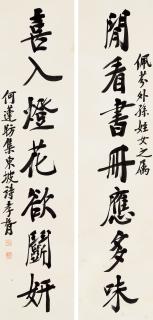 佩芬外孫姪女之屬
閒看書冊應多味
喜入燈花欲鬭妍
何蓬肪集東坡詩孝胥